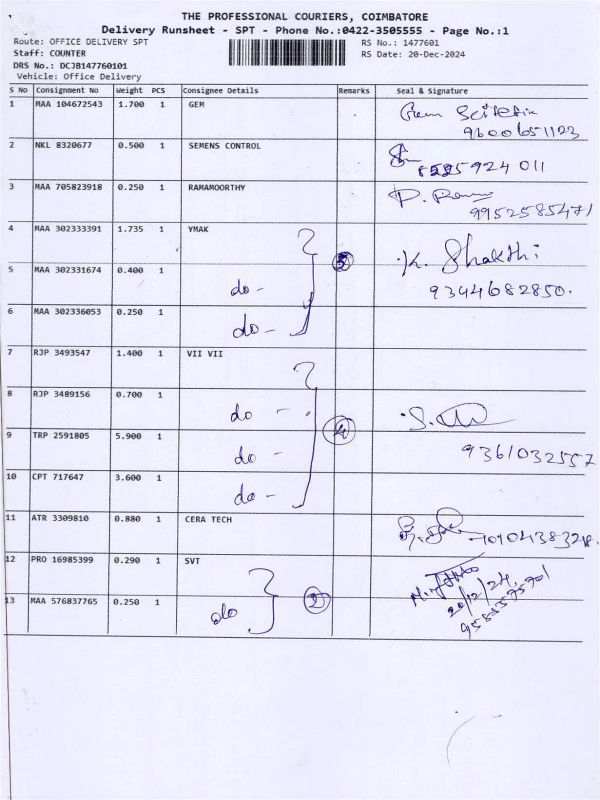 THE PROFESSIONAL COURIERS, COIMBATORE
Delivery Runsheet - SPT - Phone No.:0422-3505555 - Page No.:1
Route: OFFICE DELIVERY SPT
RS No.: 1477601
Staff: COUNTER
RS Date: 20-Dec-2024
DRS No.: DCJB147760101
Vehicle: Office Delivery
S No Consignment No Weight PCS Consignee Details Remarks Seal & Signature
1 MAA 104672543 1.700 1 GEM
9600651123
2 NKL 8320677 0.500 1 SEMENS CONTROL
924 011
3 MAA 705823918 0.250 1 RAMAMOORTHY
9952585471
4 MAA 302333391 1.735 1 YMAK
K. Shakthi
5 MAA 302331674 0.400 1 do -
9344682850.
6 MAA 302336053 0.250 1 do -
7 RJP 3493547 1.400 1 VII VII
8 RJP 3489156 0.700 1 do -
9 TRP 2591805 5.900 1 do - 4
9361032557
10 CPT 717647 3.600 1 do -
11 ATR 3309810 0.880 1 CERA TECH
12 PRO 16985399 0.290 1 SVT
20/12/24.
13 MAA 576837765 0.250 1 do 2